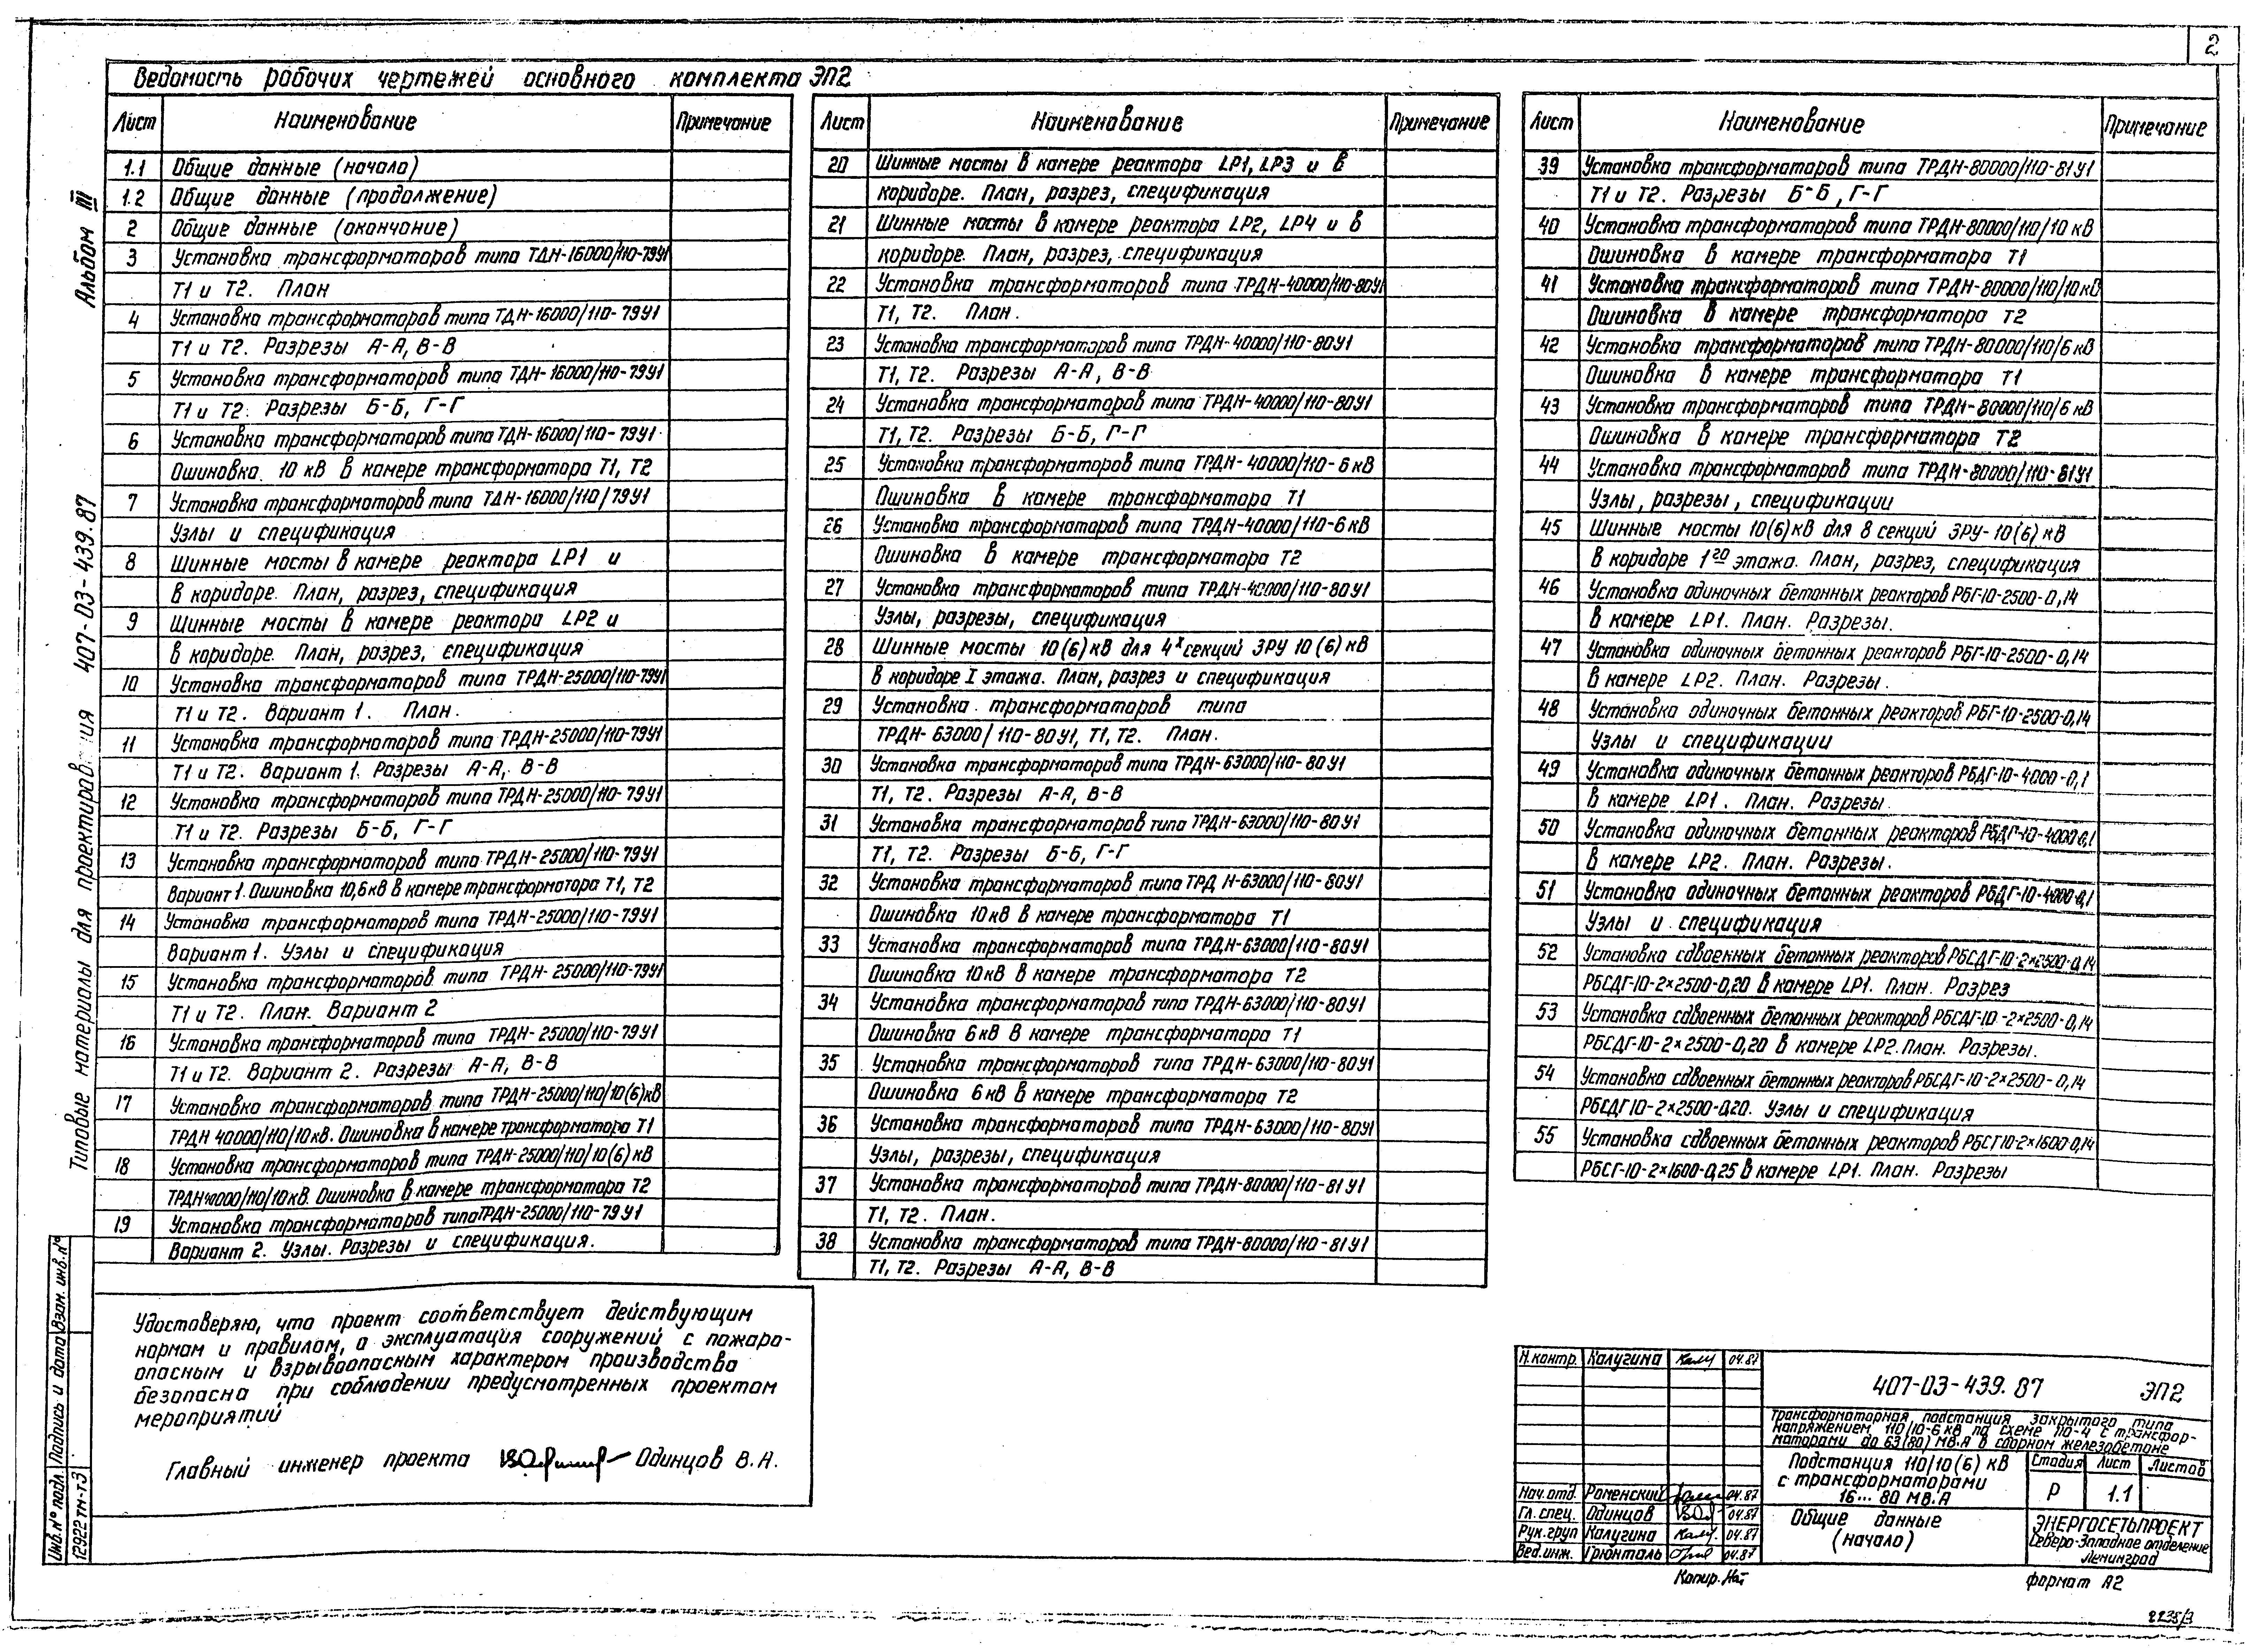 2
Ведомость рабочих чертежей основного комплекта ЭП2
Лист Наименование Примечание
1.1 Общие данные (начало)
1.2 Общие данные (продолжение)
2 Общие данные (окончание)
3 Установка трансформаторов типа ТДН-16000/110-79У1
Т1 и Т2. План
4 Установка трансформаторов типа ТДН-16000/110-79У1
Т1 и Т2. Разрезы А-А, В-В
5 Установка трансформаторов типа ТДН-16000/110-79У1
Т1 и Т2. Разрезы Б-Б, Г-Г
6 Установка трансформаторов типа ТДН-16000/110-79У1
Ошиновка 10 кВ в камере трансформатора Т1, Т2
7 Установка трансформаторов типа ТДН-16000/110/79У1
Узлы и спецификация
8 Шинные мосты в камере реактора LР1 и
в коридоре. План, разрез, спецификация
9 Шинные мосты в камере реактора LР2 и
в коридоре. План, разрез, спецификация
10 Установка трансформаторов типа ТРДН-25000/110-79У1
Т1 и Т2. Вариант 1. План.
11 Установка трансформаторов типа ТРДН-25000/110-79У1
Т1 и Т2. Вариант 1. Разрезы А-А, В-В
12 Установка трансформаторов типа ТРДН-25000/110-79У1
Т1 и Т2. Разрезы Б-Б, Г-Г
13 Установка трансформаторов типа ТРДН-25000/110-79У1
Вариант 1. Ошиновка 10,6кВ в камере трансформатора Т1, Т2
14 Установка трансформаторов типа ТРДН-25000/110-79У1
Вариант 1. Узлы и спецификация
15 Установка трансформаторов типа ТРДН-25000/110-79У1
Т1 и Т2. План. Вариант 2
16 Установка трансформаторов типа ТРДН-25000/110-79У1
Т1 и Т2. Вариант 2. Разрезы А-А, В-В
17 Установка трансформаторов типа ТРДН-25000/110/10(6)кВ
ТРДН 40000/110/10кВ. Ошиновка в камере трансформатора Т1
18 Установка трансформаторов типа ТРДН-25000/110/10(6)кВ
ТРДН40000/110/10кВ. Ошиновка в камере трансформатора Т2
19 Установка трансформаторов типа ТРДН-25000/110-79У1
Вариант 2. Узлы. Разрезы и спецификация.
Лист Наименование Примечание
20 Шинные мосты в камере реактора LР1, LР3 и в
коридоре. План, разрез, спецификация
21 Шинные мосты в камере реактора LР2, LР4 и в
коридоре. План, разрез, спецификация
22 Установка трансформаторов типа ТРДН-40000/110-80У1
Т1, Т2. План.
23 Установка трансформаторов типа ТРДН-40000/110-80У1
Т1, Т2. Разрезы А-А, В-В
24 Установка трансформаторов типа ТРДН-40000/110-80У1
Т1, Т2. Разрезы Б-Б, Г-Г
25 Установка трансформаторов типа ТРДН-40000/110-6кВ
Ошиновка в камере трансформатора Т1
26 Установка трансформаторов типа ТРДН-40000/110-6кВ
Ошиновка в камере трансформатора Т2
27 Установка трансформаторов типа ТРДН-40000/110-80У1
Узлы, разрезы, спецификация
28 Шинные мосты 10(6)кВ для 4х секций ЗРУ 10(6)кВ
в коридоре I этажа. План, разрез и спецификация
29 Установка трансформаторов типа
ТРДН-63000/110-80У1, Т1, Т2. План.
30 Установка трансформаторов типа ТРДН-63000/110-80У1
Т1, Т2. Разрезы А-А, В-В
31 Установка трансформаторов типа ТРДН-63000/110-80У1
Т1, Т2. Разрезы Б-Б, Г-Г
32 Установка трансформаторов типа ТРДН-63000/110-80У1
Ошиновка 10кВ в камере трансформатора Т1
33 Установка трансформаторов типа ТРДН-63000/110-80У1
Ошиновка 10кВ в камере трансформатора Т2
34 Установка трансформаторов типа ТРДН-63000/110-80У1
Ошиновка 6кВ в камере трансформатора Т1
35 Установка трансформаторов типа ТРДН-63000/110-80У1
Ошиновка 6кВ в камере трансформатора Т2
36 Установка трансформаторов типа ТРДН-63000/110-80У1
Узлы, разрезы, спецификация
37 Установка трансформаторов типа ТРДН-80000/110-81У1
Т1, Т2. План.
38 Установка трансформаторов типа ТРДН-80000/110-81У1
Т1, Т2. Разрезы А-А, В-В
Лист Наименование Примечание
39 Установка трансформаторов типа ТРДН-80000/110-81У1
Т1 и Т2. Разрезы Б-Б, Г-Г
40 Установка трансформаторов типа ТРДН-80000/110/10 кВ
Ошиновка в камере трансформатора Т1
41 Установка трансформаторов типа ТРДН-80000/110/10кВ
Ошиновка в камере трансформатора Т2
42 Установка трансформаторов типа ТРДН-80000/110/6кВ
Ошиновка в камере трансформатора Т1
43 Установка трансформаторов типа ТРДН-80000/110/6кВ
Ошиновка в камере трансформатора Т2
44 Установка трансформаторов типа ТРДН-80000/110-81У1
Узлы, разрезы, спецификации
45 Шинные мосты 10(6)кВ для 8 секций ЗРУ-10(6)кВ
в коридоре 1го этажа. План, разрез, спецификация
46 Установка одиночных бетонных реакторов РБГ-10-2500-0,14
в камере LР1. План. Разрезы.
47 Установка одиночных бетонных реакторов РБГ-10-2500-0,14
в камере LР2. План. Разрезы.
48 Установка одиночных бетонных реакторов РБГ-10-2500-0,14
Узлы и спецификации
49 Установка одиночных бетонных реакторов РБДГ-10-4000-0,1
в камере LР1. План. Разрезы
50 Установка одиночных бетонных реакторов РБДГ-10-4000-0,1
в камере LР2. План. Разрезы.
51 Установка одиночных бетонных реакторов РБДГ-10-4000-0,1
Узлы и спецификация
52 Установка сдвоенных бетонных реакторов РБСДГ-10-2×2500-0,14
РБСДГ-10-2×2500-0,20 в камере LР1. План. Разрез
53 Установка сдвоенных бетонных реакторов РБСДГ-10-2×2500-0,14
РБСДГ-10-2×2500-0,20 в камере LР2. План. Разрезы.
54 Установка сдвоенных бетонных реакторов РБСДГ-10-2×2500-0,14
РБСДГ 10-2×2500-0,20. Узлы и спецификация
55 Установка сдвоенных бетонных реакторов РБСГ10-2×1600-0,14
РБСГ-10-2×1600-0,25 в камере LР1. План. Разрезы
Удостоверяю, что проект соответствует действующим
нормам и правилам, а эксплуатация сооружений с пожаро-
опасным и взрывоопасным характером производства
безопасна при соблюдении предусмотренных проектом
мероприятий
Главный инженер проекта Одинцов В.А.
Типовые материалы для проектирования 407-03-439.87 Альбом III
Инв.№ подл. Подпись и дата Взам. инв.№
12922тм-т3
Н.контр. Калугина 04.87
Нач.отд. Роменский 04.87
Гл.спец. Одинцов 04.87
Рук.груп Калугина 04.87
Вед.инж. Грюнталь 04.87
407-03-439.87 ЭП2
Трансформаторная подстанция закрытого типа
напряжением 110/10-6кВ по схеме 110-4 с трансфор-
маторами до 63(80)МВ.А в сборном железобетоне
Подстанция 110/10(6)кВ
с трансформаторами
16...80 МВ.А
Стадия Лист Листов
Р 1.1
Общие данные
(начало)
ЭНЕРГОСЕТЬПРОЕКТ
Северо-Западное отделение
Ленинград
Копир.
формат А2